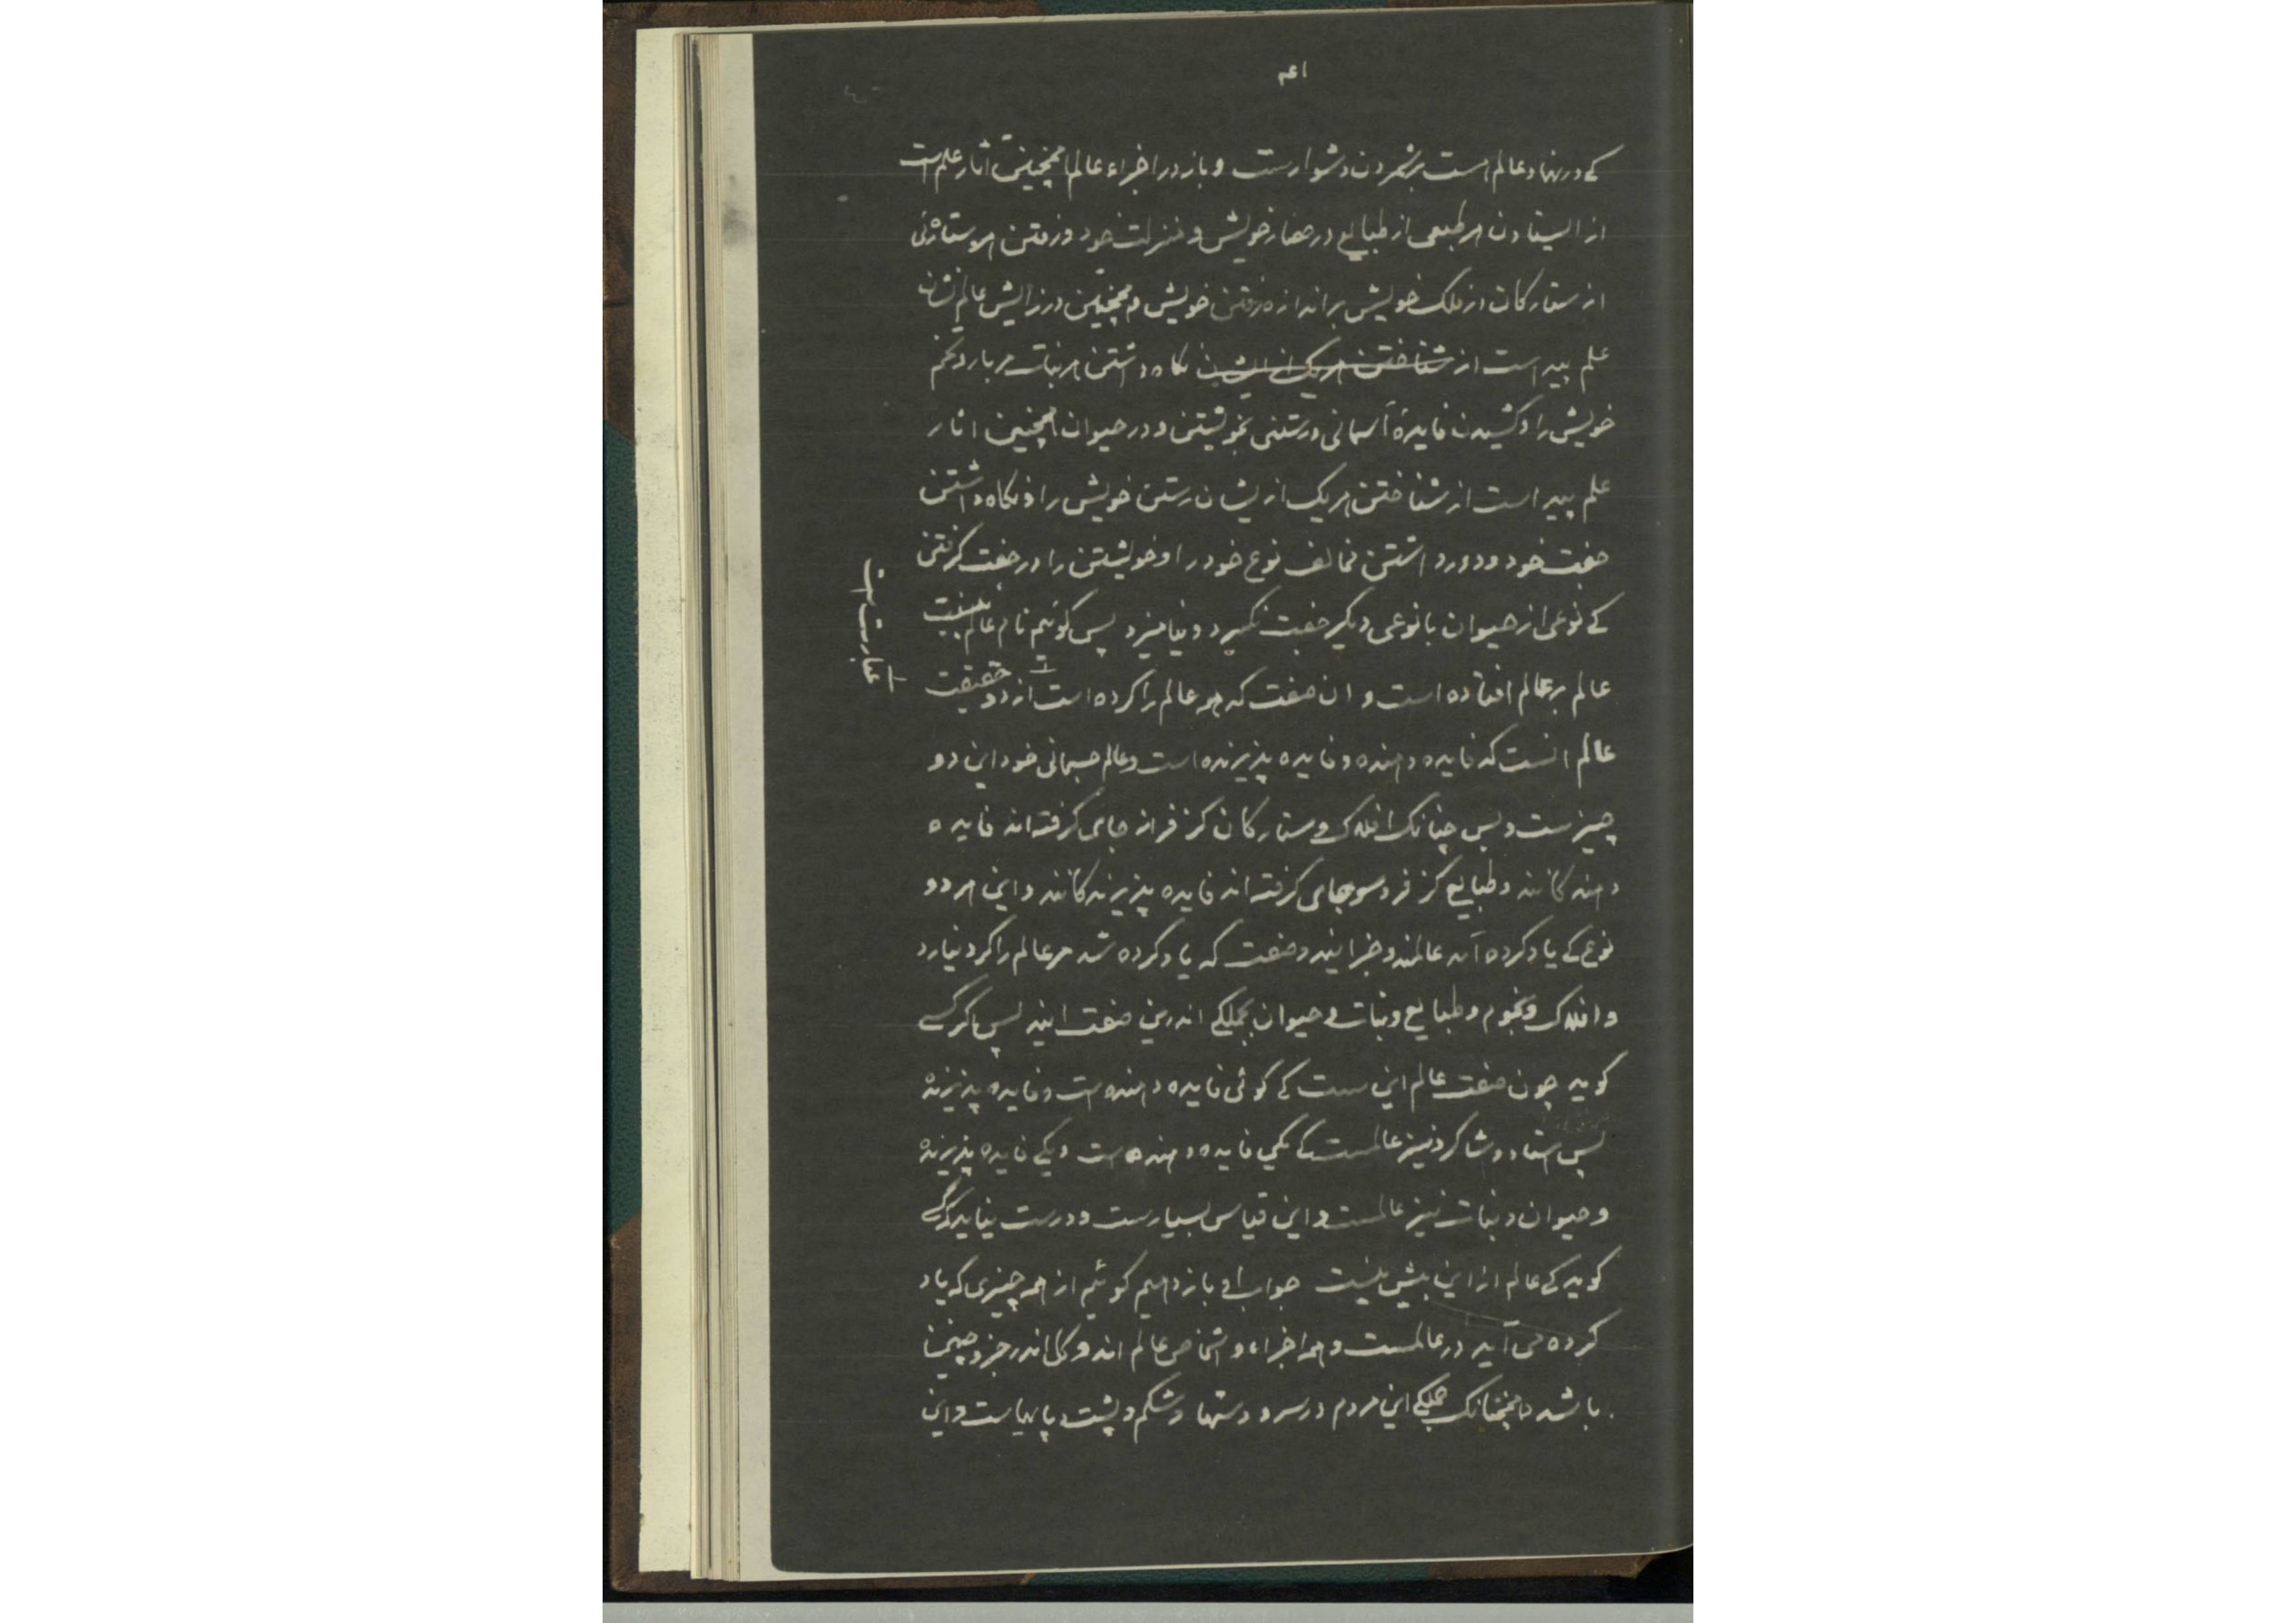 ۴۱
کے در نهاد عالم است برشمردن دشوارست و باز در اجزاء عالم همچنین آثار علم است
از ایستادن هر طبعی از طبایع در حصار خویش و منزلت خود و رفتن هر ستارهٔ
از ستارکان در فلک خویش بر اندازه رفتن خویش و همچنین در زایش عالم نشان
علم پیداست از شناختن هر یک از ایشان نکاه داشتن هر نبات مر بار و تخم
خویش را و کشیدن فایدهٔ آسمانی و رستنی بخویشتن و در حیوان همچنین اثار
علم پیداست از شناختن هر یک از یشان رستن خویش را و نکاه داشتن
جفت خود و دور داشتن مخالف نوع خود را و خویشتن را در جفت کرفتن
کے نوعی از حیوان با نوعی دیکر جفت نکیرد و نیامیزد پس کوئیم نام عالم بصفت
عالم بر عالم افتاده است و ان صفت که مر عالم را کرده است از دو حقیقت
عالم انست که فایده دهنده و فایده پذیرنده است و عالم جسمانی خود این دو
چیزست و بس چنانک افلاک و ستارکان کز فراز جای کرفته اند فایده
دهندکانند و طبایع کز فروسو جای کرفته اند فایده پذیرندکانند و این هر دو
نوع کے یاد کرده آمد عالمند و جز این دو صفت که یاد کرده شد مر عالم را کرد نیارد
و افلاک و نجوم و طبایع و نبات و حیوان بجملکے اندرین صفت ایند پس اکر کسے
کوید چون صفت عالم این ست کے کوئی فایده دهنده ست و فایده پذیرنده
پس استاد و شاکرد نیز عالمست کے یکی فایده دهنده ست و یکے فایده پذیرنده
و حیوان و نبات نیز عالمست و این قیاس بسیارست و درست نیاید کے
کوید کے عالم از این بیش نیست جواب او باز دهیم کوئیم از همه چیزی که یاد
کرده می آید در عالمست و همه اجزاء و اشخاص عالم اند و کل اندر جزو چنین
باشد همچنانک جملکے این مردم در سر و دستها و شکم و پشت و پایهاست و این
عبارت